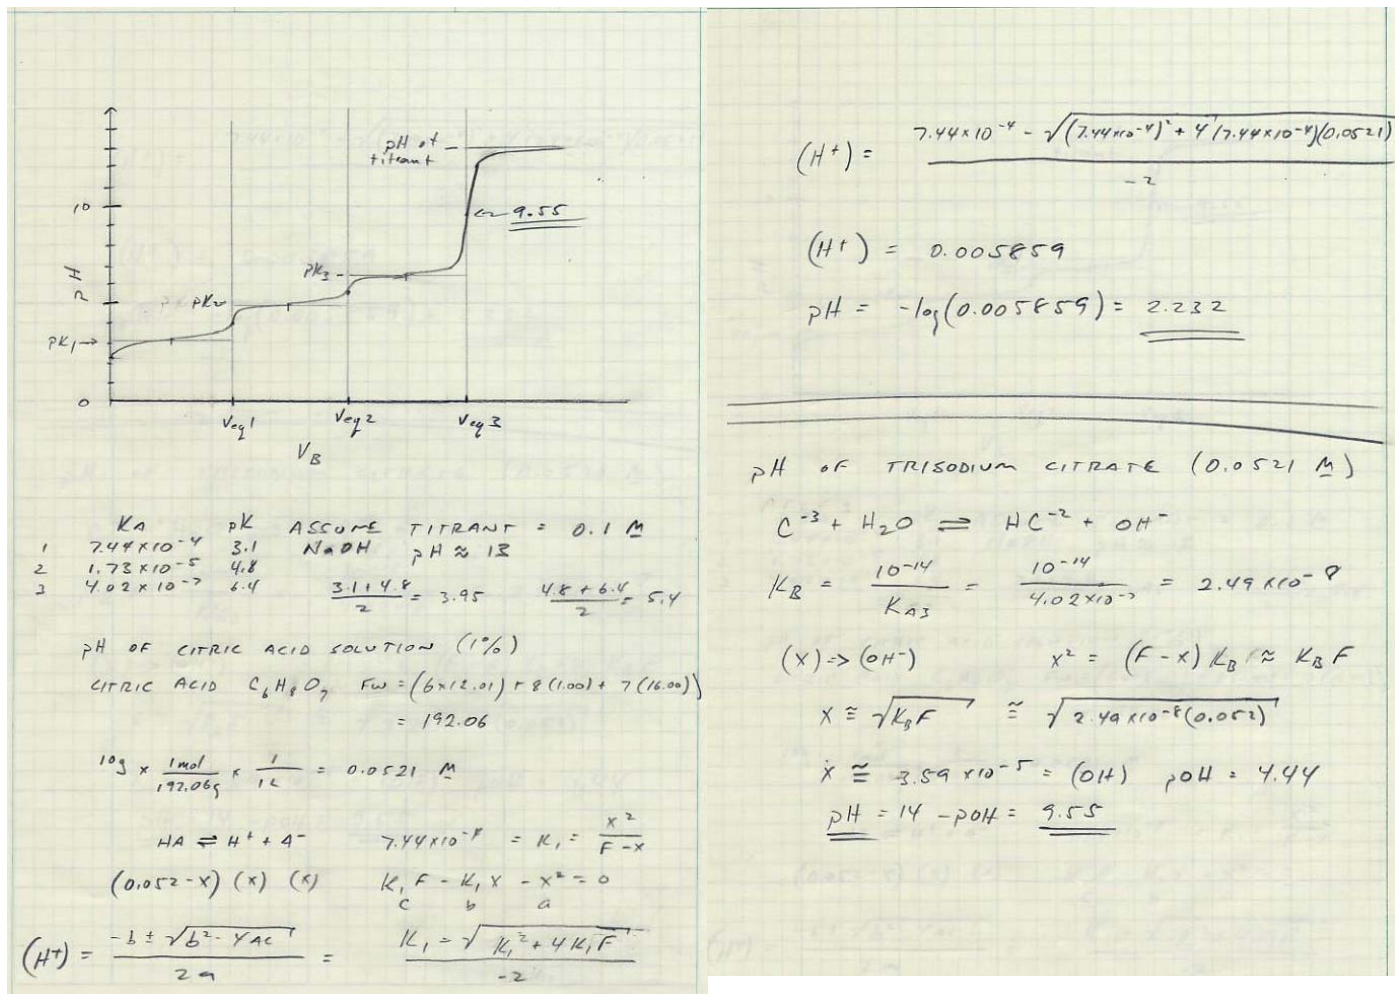 pH of
titrant
10
← 9.55
pH
pK3
pK2
pK1 →
0
Veq1 Veq2 Veq3
VB
KA pK ASSUME TITRANT = 0.1 M
1 7.44×10⁻⁴ 3.1 NaOH pH ≈ 13
2 1.73×10⁻⁵ 4.8
3 4.02×10⁻⁷ 6.4 (3.1+4.8)/2 = 3.95 (4.8+6.4)/2 = 5.4
pH OF CITRIC ACID SOLUTION (1%)
CITRIC ACID C₆H₈O₇ FW = (6×12.01) + 8(1.00) + 7(16.00)
= 192.06
10g × 1mol/192.06g × 1/1L = 0.0521 M
HA ⇌ H⁺ + A⁻ 7.44×10⁻⁴ = K₁ = x²/(F-x)
(0.052-x) (x) (x) K₁F - K₁x - x² = 0
c b a
(H⁺) = (-b ± √(b² - 4AC))/2a = (K₁ - √(K₁² + 4K₁F))/-2
(H⁺) = (7.44×10⁻⁴ - √((7.44×10⁻⁴)² + 4(7.44×10⁻⁴)(0.0521)))/-2
(H⁺) = 0.005859
pH = -log(0.005859) = 2.232
pH OF TRISODIUM CITRATE (0.0521 M)
C⁻³ + H₂O ⇌ HC⁻² + OH⁻
KB = 10⁻¹⁴/KA3 = 10⁻¹⁴/4.02×10⁻⁷ = 2.49×10⁻⁸
(X) => (OH⁻) x² = (F-x) KB ≈ KB F
x ≅ √(KB F) ≅ √(2.49×10⁻⁸(0.052))
x ≅ 3.59×10⁻⁵ = (OH) pOH = 4.44
pH = 14 - pOH = 9.55